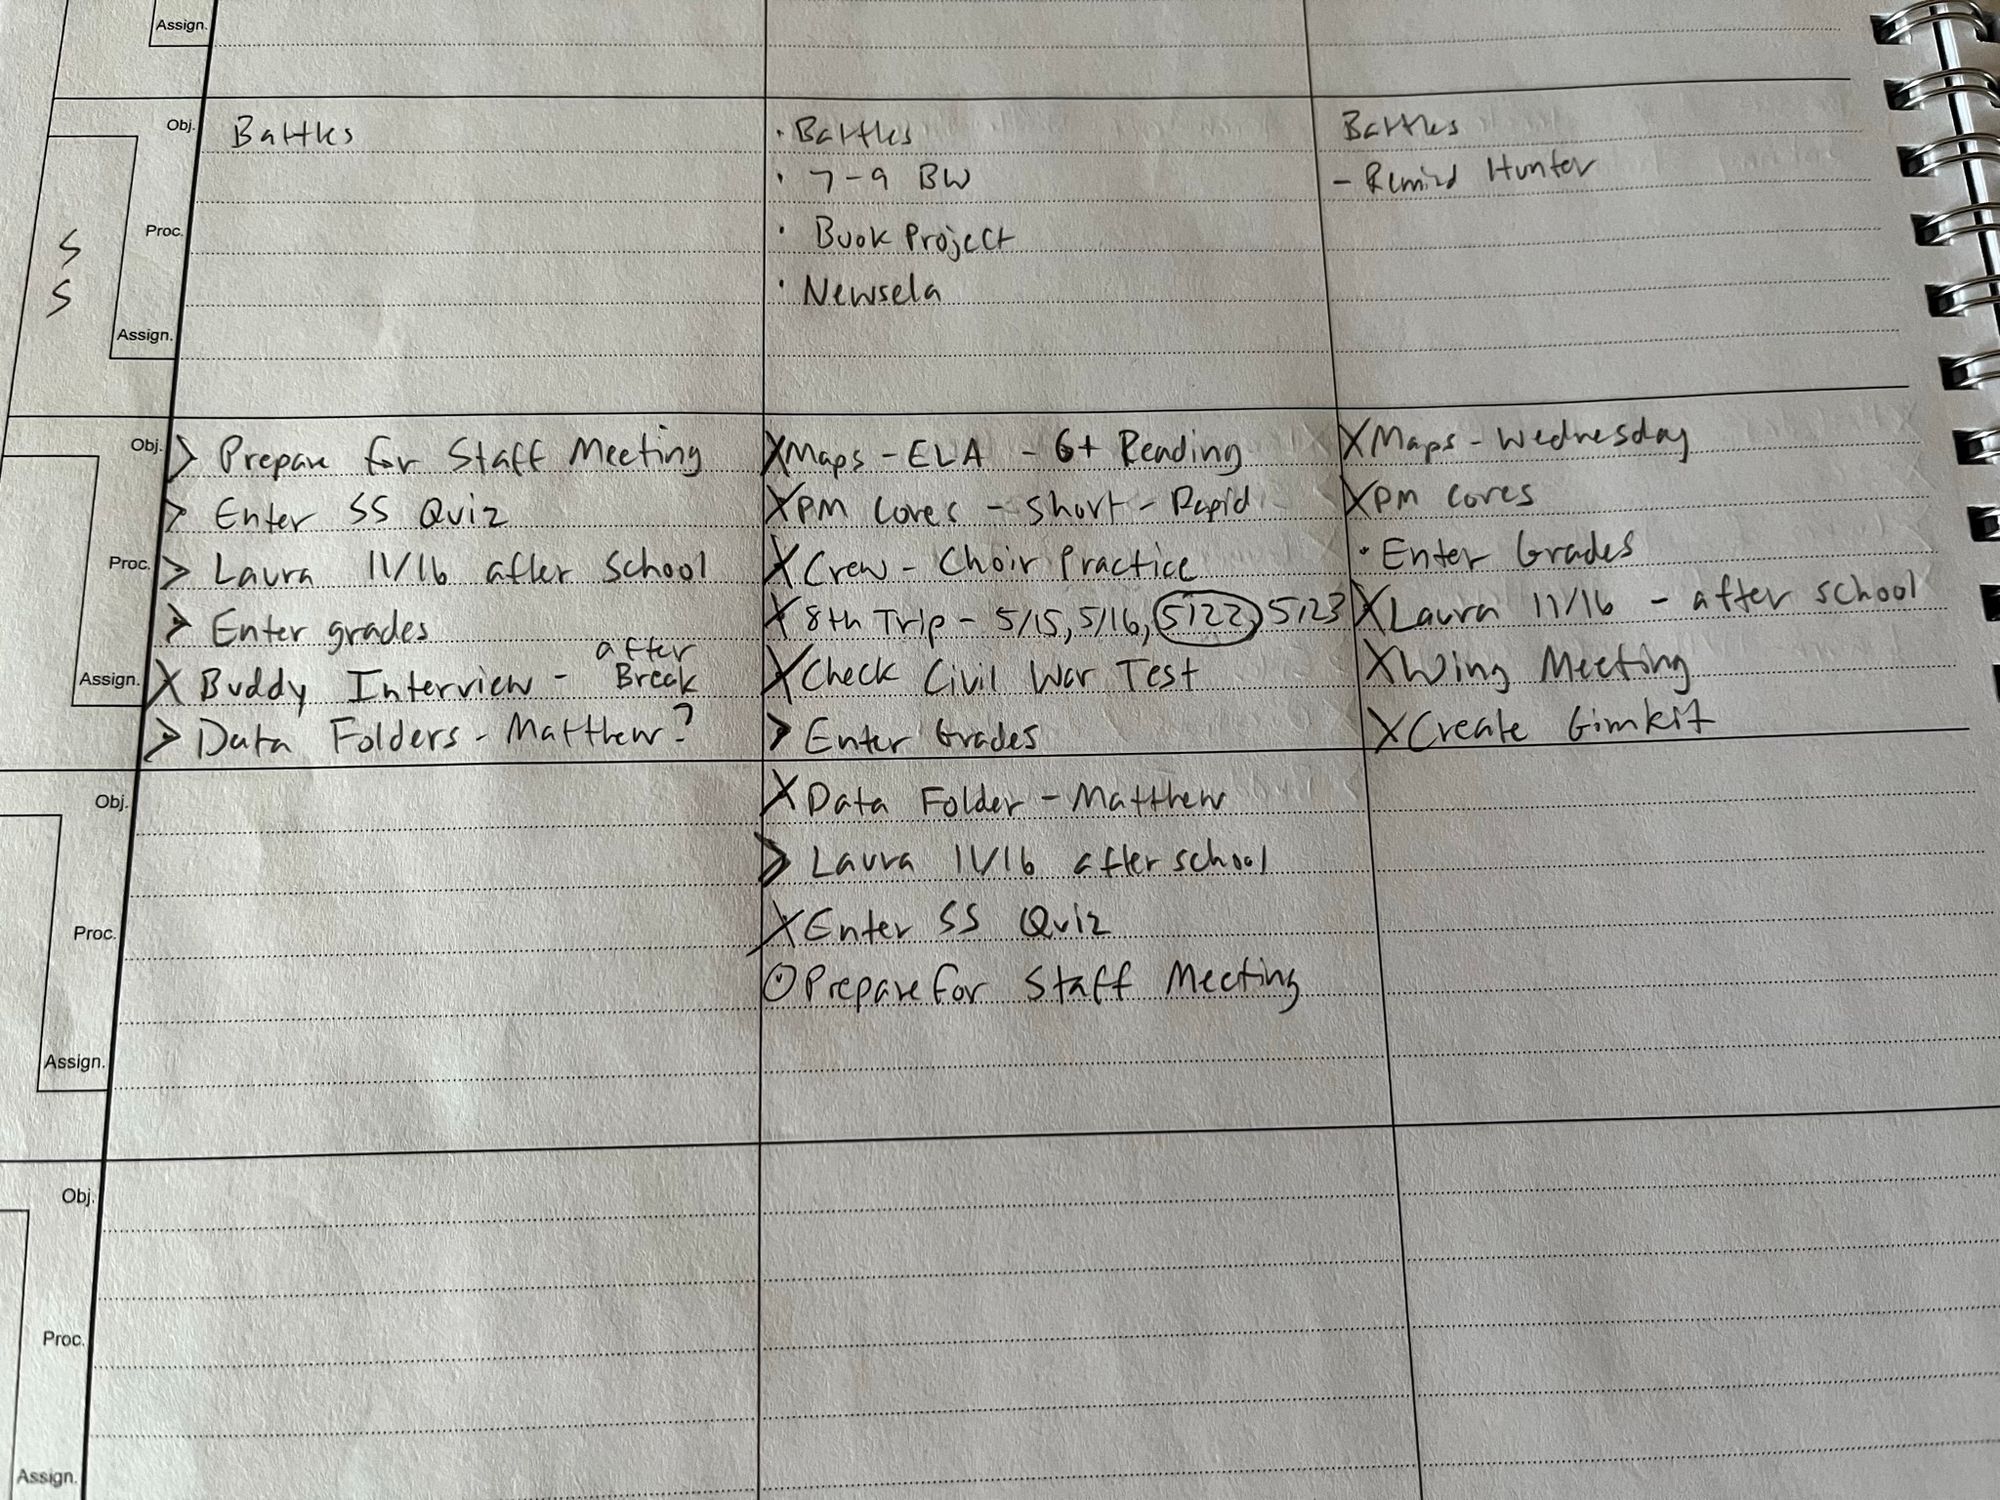 Assign.
Obj.
Proc.
Assign.
S
S
Battles
· Battles
· 7-9 BW
· Book Project
· Newsela
Battles
- Remind Hunter
Obj.
Proc.
Assign.
> Prepare for Staff Meeting
> Enter SS Quiz
> Laura 11/16 after school
> Enter grades
X Buddy Interview - after Break
> Data Folders - Matthew?
X Maps - ELA - 6+ Reading
X PM Cores - Short - Rapid
X Crew - Choir Practice
X 8th Trip - 5/15, 5/16, 5/22, 5/23
X Check Civil War Test
> Enter Grades
X Maps - Wednesday
X PM Cores
· Enter Grades
X Laura 11/16 - after school
X Wing Meeting
X Create Gimkit
Obj.
Proc.
Assign.
X Data Folder - Matthew
> Laura 11/16 after school
X Enter SS Quiz
⊙ Prepare for Staff Meeting
Obj.
Proc.
Assign.